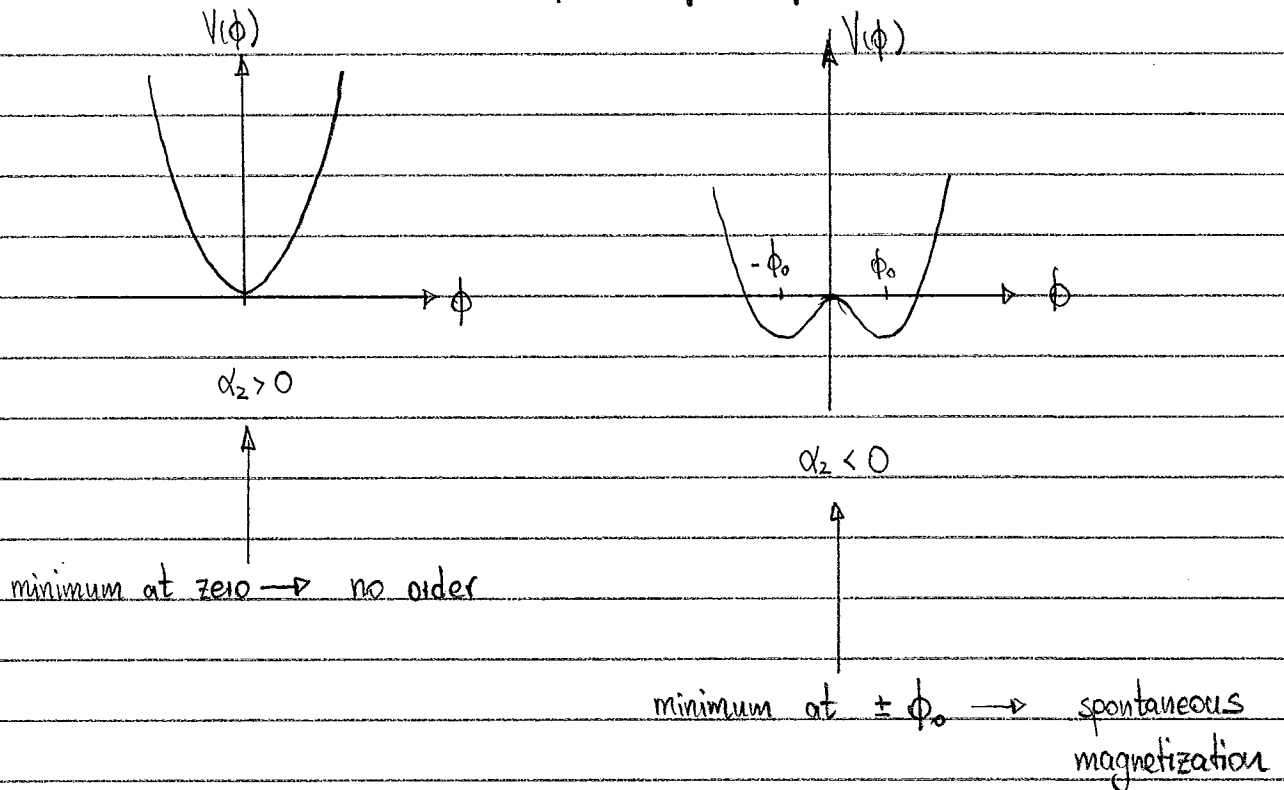 V(ϕ)
ϕ
α₂ > 0
minimum at zero → no order
V(ϕ)
-ϕ₀ ϕ₀
ϕ
α₂ < 0
minimum at ± ϕ₀ → spontaneous
magnetization